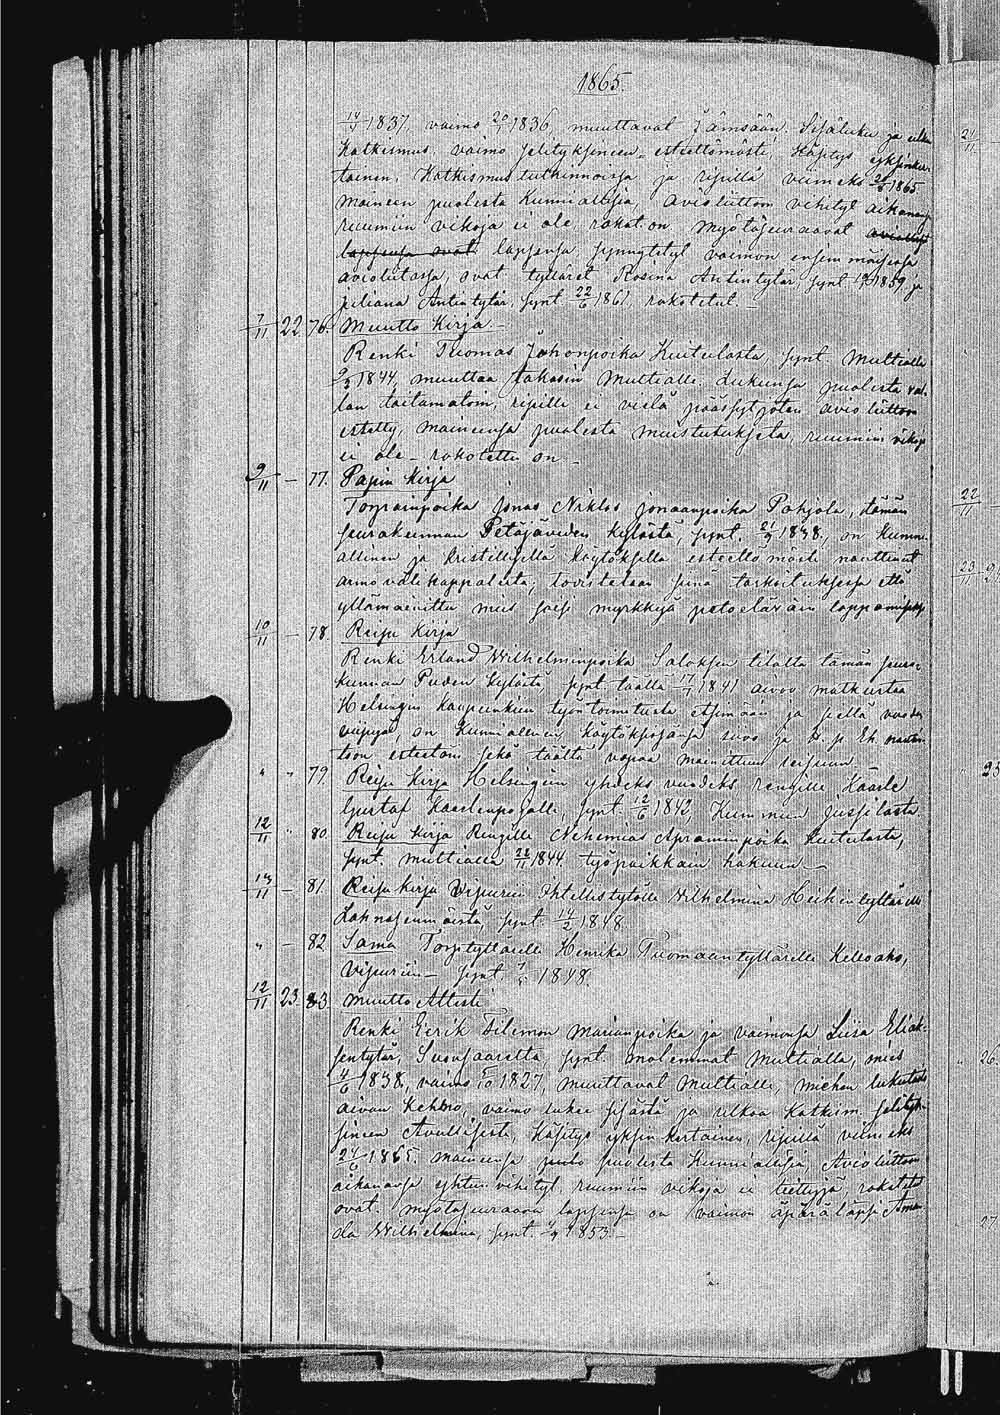 1865.
14/4 1837, vaimo 20/1 1836, muuttavat Jämsään. Sisäluku ja ulko
Katkesmus, vaimo selityksineen, esteettömästi käsitys yksinker-
tainen. Katkesmus tutkinnoissa ja ripillä viimeks 1865
maineen puolesta Kunnialliisia, avioliittoon vihityt aikanansa
ruumiin vikoja ei ole, rokot. on. Myötäseuraavat
lapsensa ovat lapsensa synnytetyt vaimon ensimmäisessä
avioliitossa, ovat tyttäret Rosina Antintytär, synt. 1859, ja
Juliana Antintytär, synt. 22/6 1861, rokotetut.
7/11 22. 76. Muutto Kirja.-
Renki Tuomas Juhonpoika Kuitulasta, synt. Multialla
1844, muuttaa takasin Multialle. Lukunsa puolesta val-
lan taitamatoin, ripille ei vielä päässyt joten avioliittoon
estetty, maineensa puolesta muistutukseta, ruumiin vikoja
ei ole - rokotettu on -
9/11 - 77. Papin Kirja
Torpanpoika Jonas Niklas Jonaanpoika Pohjola, tämän
seurakunnan Petäjäveden kylästä, synt. 21/9 1838, on Kunni-
allinen ja kristillisellä käytöksellä esteettömästi nauttinut
armovälikappaleita; toivistetaan siinä tarkoituksessa että
yllämainittu mies saisi myrkkyjä petoeläväin tappamiseksi
10/11 - 78. Reisu Kirja
Renki Erland Wilhelminpoika Saloksen tilalta tämän seura-
kunnan Puden kylästä synt. täällä 17/1 1841 aivoo matkustaa
Helsingin kaupunkiin työn toimitusta etsimään ja siellä vuoden
viipyä, on Kunniallinen käytöksessänsä suvo ja H. p. Eh. nautin-
toon esteetöin sekä täältä vapaa mainittuun reisuun. -
" " 79. Reisu Kirja Helsingiin yhdeks vuodeks rengille Kaarle
Gustaf Kaarlenpojalle, synt. 12/6 1842, Kummun Jussilasta
12/11 " 80. Reisu Kirja Rengille Nehemias Apraminpoika Kuitulasta,
synt. Multialla 28/11 1844 työpaikkain hakuun -
13/11 - 81. Reisu kirja Vipuriin Ihtellistytölle Wilhelmina Heikintyttärelle
Lahnasenmäistä, synt. 14/2 1848.
" - 82. Sama Torp. tyttärelle Henrika Tuomaantyttärelle Kelloaho,
Vipuriin - synt. 1848.
12/11 23. 83. Muutto Attesti
Renki Eerik Filemon Marianpoika ja vaimonsa Liisa Eliak-
sentytär, Suonsaaretta, synt. molemmat Multialla, mies
4/6 1838, vaimo 1827, muuttavat Multialle, miehen lukutaito
aivan kehno, vaimo lukee sisästä ja ulkoa Katkism. selityk-
sineen Avullisesti, käsitys yksinkertainen, ripillä viimeks
24/6 1865. maineensa puolesta Kunniallisia, Avioliittoon
aikanansa yhteen vihityt, ruumiin vikoja ei tiettyjä, rokotetut
ovat. Myötäseuraava lapsensa on vaimon äpärälapsi Aman-
da Wilhelmina, synt. 1853. -
21/11
22/11
23/11
25
26
27